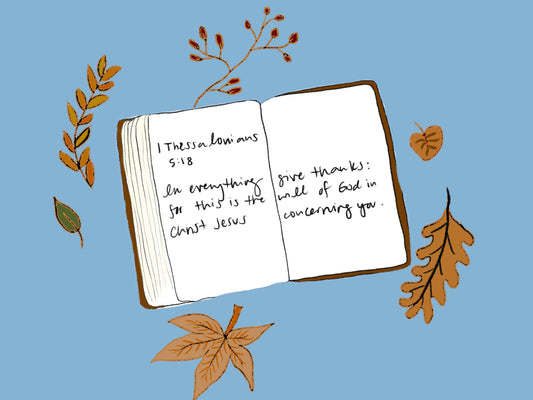 1 Thessalonians
5:18
In everything give thanks:
for this is the will of God in
Christ Jesus concerning you.